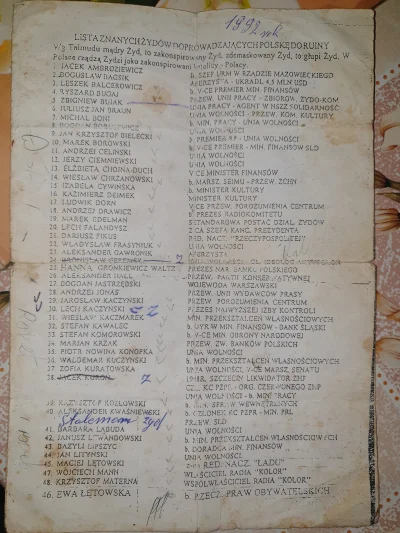 1992 rok
LISTA ZNANYCH ŻYDÓW DOPROWADZAJĄCYCH POLSKĘ DO RUINY
W/g Talmudu mądry Żyd, to zakonspirowany Żyd, zdemaskowany Żyd, to głupi Żyd. W
Polsce rządzą Żydzi jako zakonspirowani katolicy - Polacy.
1. JACEK AMBROZIEWICZ
2. BOGUSŁAW BAGSIK
3. LESZEK BALCEROWICZ
4. RYSZARD BUGAJ
5. ZBIGNIEW BUJAK
6. JULIUSZ JAN BRAUN
7. MICHAŁ BONI
8.
9. JAN KRZYSZTOF BIELECKI
10. MAREK BOROWSKI
11. ANDRZEJ CELIŃSKI
12. JERZY CIEMNIEWSKI
13. ELŻBIETA CHOJNA-DUCH
14. WIESŁAW CHRZANOWSKI
15. IZABELA CYWIŃSKA
16. KAZIMIERZ DEJMEK
17. LUDWIK DORN
18. ANDRZEJ DRAWICZ
19. MAREK EDELMAN
20. LECH FALANDYSZ
21. DARIUSZ FIKUS
22. WŁADYSŁAW FRASYNIUK
23. ALEKSANDER GAWRONIK
24. BRONISŁAW GEREMEK
25. HANNA GRONKIEWICZ WALTZ
26. ALEKSANDER HALL
27. BOGDAN JASTRZĘBSKI
28. ANDRZEJ JONAS
29. JAROSŁAW KACZYŃSKI
30. LECH KACZYŃSKI
31. WIESŁAW KACZMAREK
32. STEFAN KAWALEC
33. STEFAN KOMOROWSKI
34. MARIAN KRZAK
35. PIOTR NOWINA KONOPKA
36. WALDEMAR KUCZYŃSKI
37. ZOFIA KURATOWSKA
38. JACEK KUROŃ
39. KRZYSZTOF KOZŁOWSKI
40. ALEKSANDER KWAŚNIEWSKI
41. BARBARA LABUDA
42. JANUSZ LEWANDOWSKI
43. BAZYLI LIPSZYC
44. JAN LITYŃSKI
45. MACIEJ ŁĘTOWSKI
47. WOJCIECH MANN
48. KRZYSZTOF MATERNA
46. EWA ŁĘTOWSKA
B. SZEF URM W RZĄDZIE MAZOWIECKIEGO
AFERZYSTA - UKRADŁ 4,5 MLN USD
V-CE PREMIER MIN. FINANSÓW
PRZEW. UNII PRACY - ZBIOROW. ŻYDO-KOM.
UNIA PRACY - AGENT W NSZZ SOLIDARNOŚĆ
UNIA WOLNOŚCI - PRZEW. KOM. KULTURY
B. MIN. PRACY - UNIA WOLNOŚCI
UNIA WOLNOŚCI
B. PREMIER RP - UNIA WOLNOŚCI
B. V-CE PREMIER - MIN. FINANSÓW SLD
UNIA WOLNOŚCI
UNIA WOLNOŚCI
V-CE MINISTER FINANSÓW
B. MARSZ. SEJMU - PRZEW. ZCHN
B. MINISTER KULTURY
MINISTER KULTURY
V-CE PRZEW. POROZUMIENIA CENTRUM
B. PREZES RADIOKOMITETU
SZTANDAROWA POSTAĆ DZIAŁ. ŻYDÓW
Z-CA SZEFA KANC. PREZYDENTA
RED. NACZ. "RZECZPOSPOLITEJ"
UNIA WOLNOŚCI
AFERZYSTA
PREZES NAR. BANKU. POLSKIEGO
PRZEW. PARTII KONSERWATYWNEJ
WOJEWODA WARSZAWSKI
PRZEW. UNII WYDAWCÓW PRASY
PRZEW. POROZUMIENIA CENTRUM
PREZES NAJWYŻSZEJ IZBY KONTROLI
MIN. PRZEKSZTAŁCEŃ WŁASNOŚCIOWYCH
B. DYR W MIN. FINANSÓW - BANK ŚLĄSKI
B. V-CE MIN OBRONY NARODOWEJ
PRZEW. ZW. BANKÓW POLSKICH
UNIA WOLNOŚCI
B. MIN. PRZEKSZTAŁCEŃ WŁASNOŚCIOWYCH
UNIA WOLNOŚCI, V-CE MARSZ. SENATU
UNIA WOLNOŚCI - B. MIN. PRACY
B. MIN. SPRAW WEWNĘTRZNYCH
B. CZŁONEK KC PZPR - MIN. PRL
PRZEW. SLD
UNIA WOLNOŚCI
B. MIN. PRZEKSZTAŁCEŃ WŁASNOŚCIOWYCH
B. DORADCA MIN. FINANSÓW
UNIA WOLNOŚCI
RED. NACZ. "ŁADU"
WŁAŚCICIEL RADIA "KOLOR"
WSPÓŁWŁAŚCICIEL RADIA "KOLOR"
B. RZECZ. PRAW OBYWATELSKICH